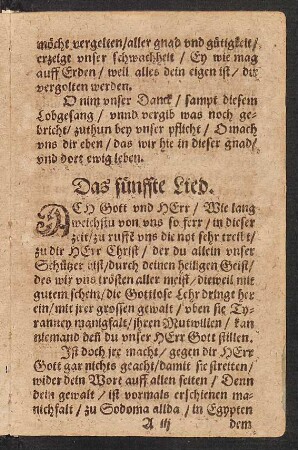 möcht vergelten/aller gnad vnd gütigkeit/
erzeigt vnser schwachheit / Ey wie mag
auff Erden / weil alles dein eigen ist / dir
vergolten werden.
O nim vnser Danck / sampt diesem
Lobgesang / vnnd vergib was noch ge-
bricht/zuthun bey vnser pflicht / O mach
vns dir eben / das wir hie in dieser gnad/
vnd dort ewig leben.
Das fünffte Lied.
ACH Gott vnd HErr / Wie lang
weichstu von vns so ferr / in dieser
zeit/zu rufft vns die not sehr treibt/
zu dir HErr Christ / der du allein vnser
Schützer bist/durch deinen heiligen Geist/
des wir vns trösten aller meist / dieweil mit
gutem schein/die Gottlose Lehr dringt her
ein/mit jrer grossen gewalt / vben sie Ty-
ranney manigfalt/jhren Mutwillen / kan
niemand deñ du vnser HErr Gott stillen.
Ist doch jre macht / gegen dir HErr
Gott gar nichts geacht/damit sie streitten/
wider dein Wort auff allen seiten / Denn
dein gewalt / ist vormals erschienen ma-
nichfalt / zu Sodoma allda / in Egypten
A iij dem